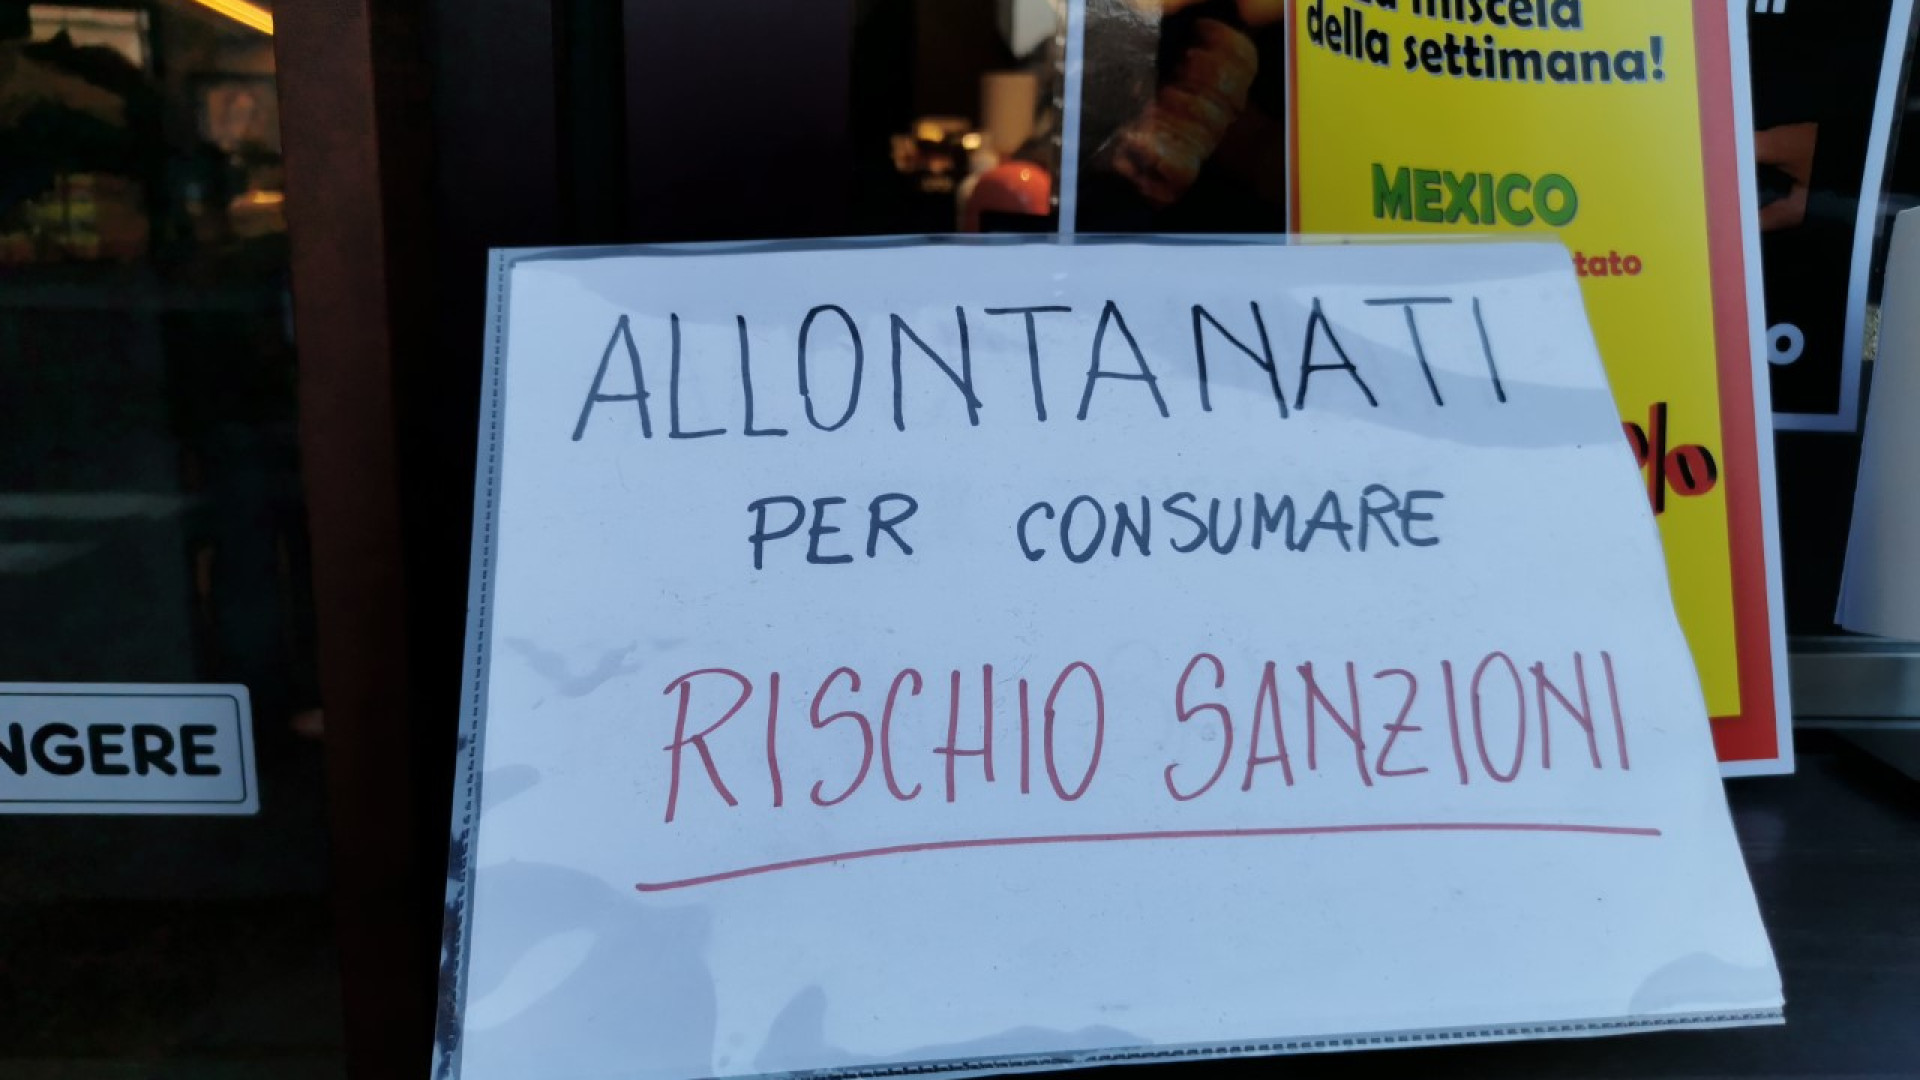 miscela
della settimana!
MEXICO
tato
o
%
ALLONTANATI
PER CONSUMARE
RISCHIO SANZIONI
NGERE